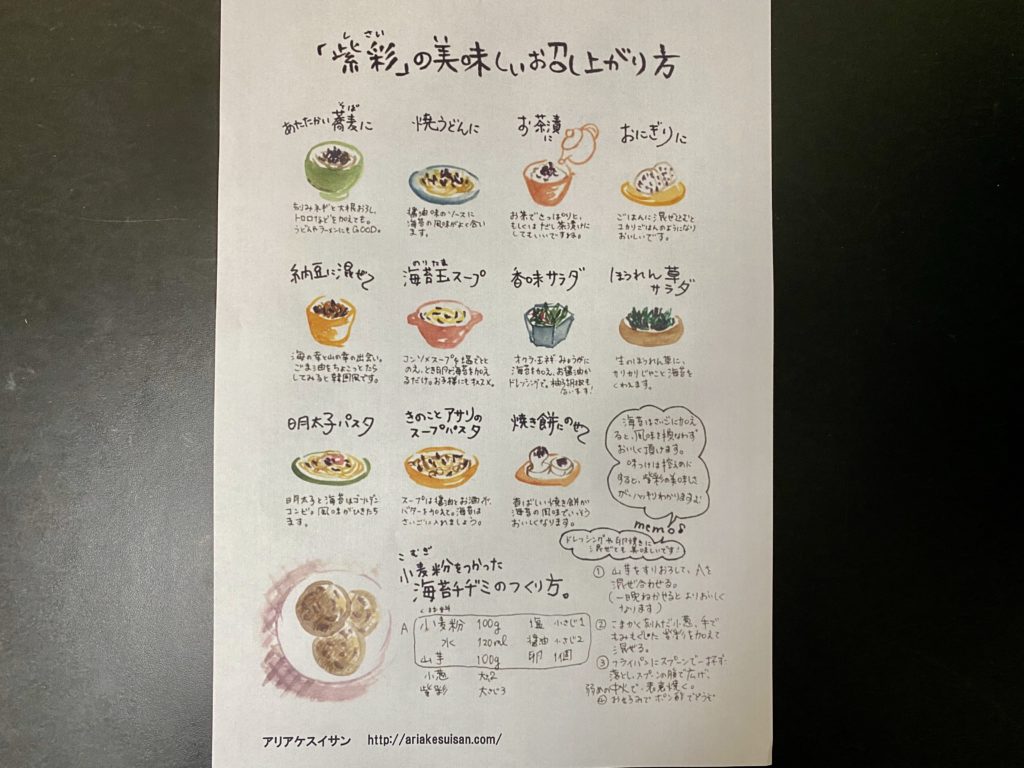 「紫彩」の美味しいお召し上がり方
しさい
あたたかい蕎麦に
そば
刻みネギと大根おろし、
トロロなどを加えても。
うどんやラーメンにもGOOD。
焼うどんに
醤油味のソースに
海苔の風味がよく合い
ます。
お茶漬に
お茶でさっぱりと、
もしくはだし茶漬けに
してもいいですね。
おにぎりに
ごはんに混ぜ込むと
ユカリごはんのようになり
おいしいです。
納豆に混ぜて
海の幸と山の幸の出会い。
ごま油をちょこっとたら
してみると韓国風です。
のりたま
海苔玉スープ
コンソメスープを塩でとと
のえ、とき卵と海苔を加え
るだけ。お子様にもオススメ。
香味サラダ
オクラ・玉ネギ・みょうがに
海苔を加え、お醤油か
ドレッシングで。柚子胡椒も
合います!
ほうれん草
サラダ
生のほうれん草に、
カリカリじゃこと海苔を
くわえます。
明太子パスタ
明太子と海苔はゴールデン
コンビ。風味がひきたち
ます。
きのことアサリの
スープパスタ
スープは醤油とお酒、水、
バターを加えて。海苔は
さいごに入れましょう。
焼き餅にのせて
香ばしい焼き餅が
海苔の風味でいっそう
おいしくなります。
海苔はさいごに加え
ると、風味を損なわず
おいしく頂けます。
味つけは控えめに
すると、紫彩の美味しさ
がハッキリわかりますよ!
memo
ドレッシングや卵焼きに
混ぜても美味しいです!
こむぎ
小麦粉をつかった
海苔チヂミのつくり方。
A
小麦粉 100g 塩 小さじ1
水 120ml 醤油 小さじ2
山芋 100g 卵 1個
小葱 大2
紫彩 大さじ3
① 山芋をすりおろして、Aを
混ぜ合わせる。
(一晩ねかせるとよりおいしく
なります)
② こまかく刻んだ小葱、手で
もみもぐした紫彩を加えて
混ぜる。
③ フライパンにスプーンで一杯ず
落とし、スプーンの腹で広げ、
弱めの中火で、表裏焼く。
④ おもろみでポン酢でどうぞ
アリアケスイサン http://ariakesuisan.com/